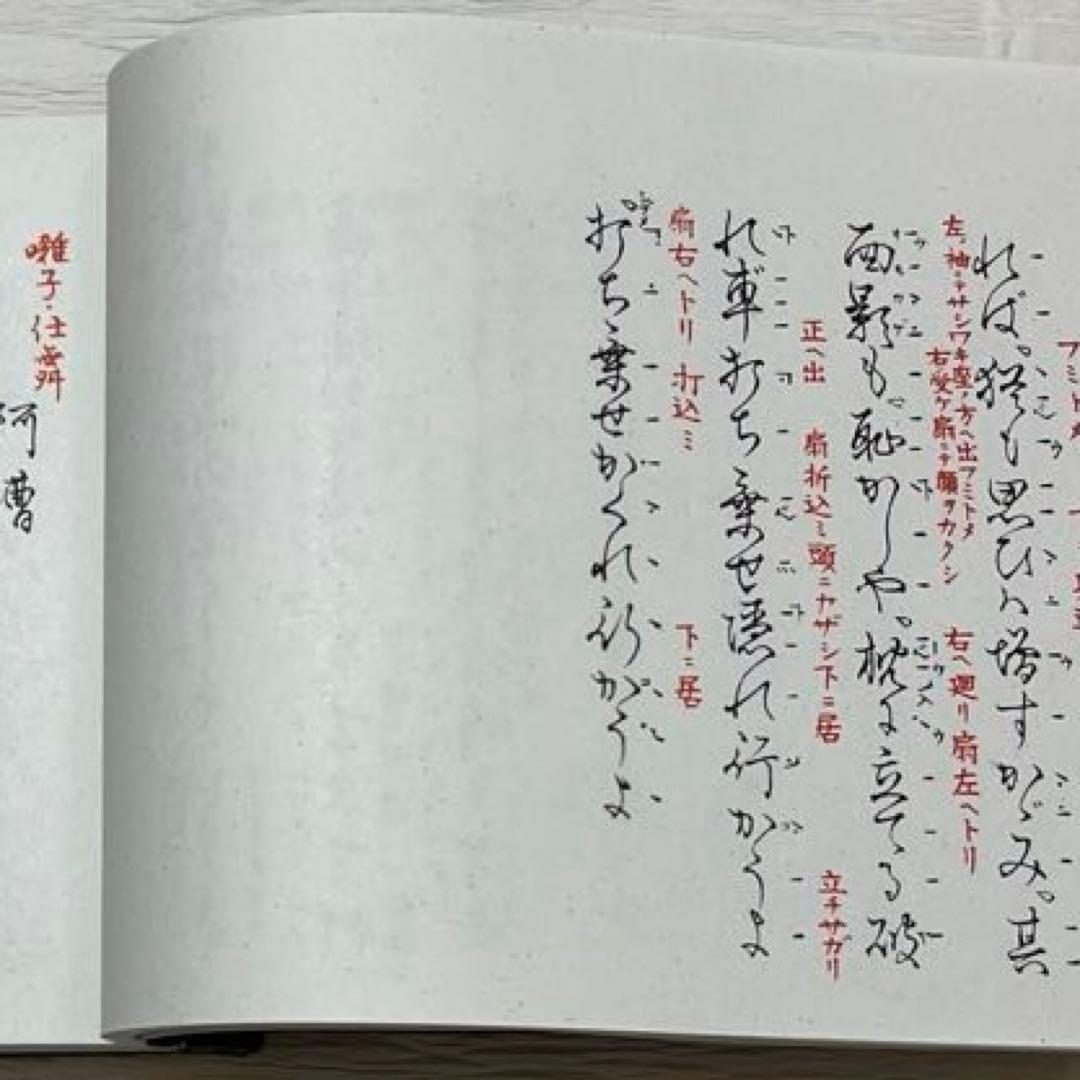 れば。猶も思ひハ増すかゞみ。其
左ノ袖ニテサシワキ座ノ方ヘ出アミトメ
右受ケ扇ニテ顔ヲカクシ
右ヘ廻リ扇左ヘトリ
面影も。恥かしや。枕に立てる破
正ヘ出 扇折込ミ頭ニカザシ下ニ居
立チサガリ
れ車打ち乗せ隠れ行かうよ
扇右ヘトリ 打込ミ
下ニ居
打ち乗せかくれ行かうよ
囃子・仕舞